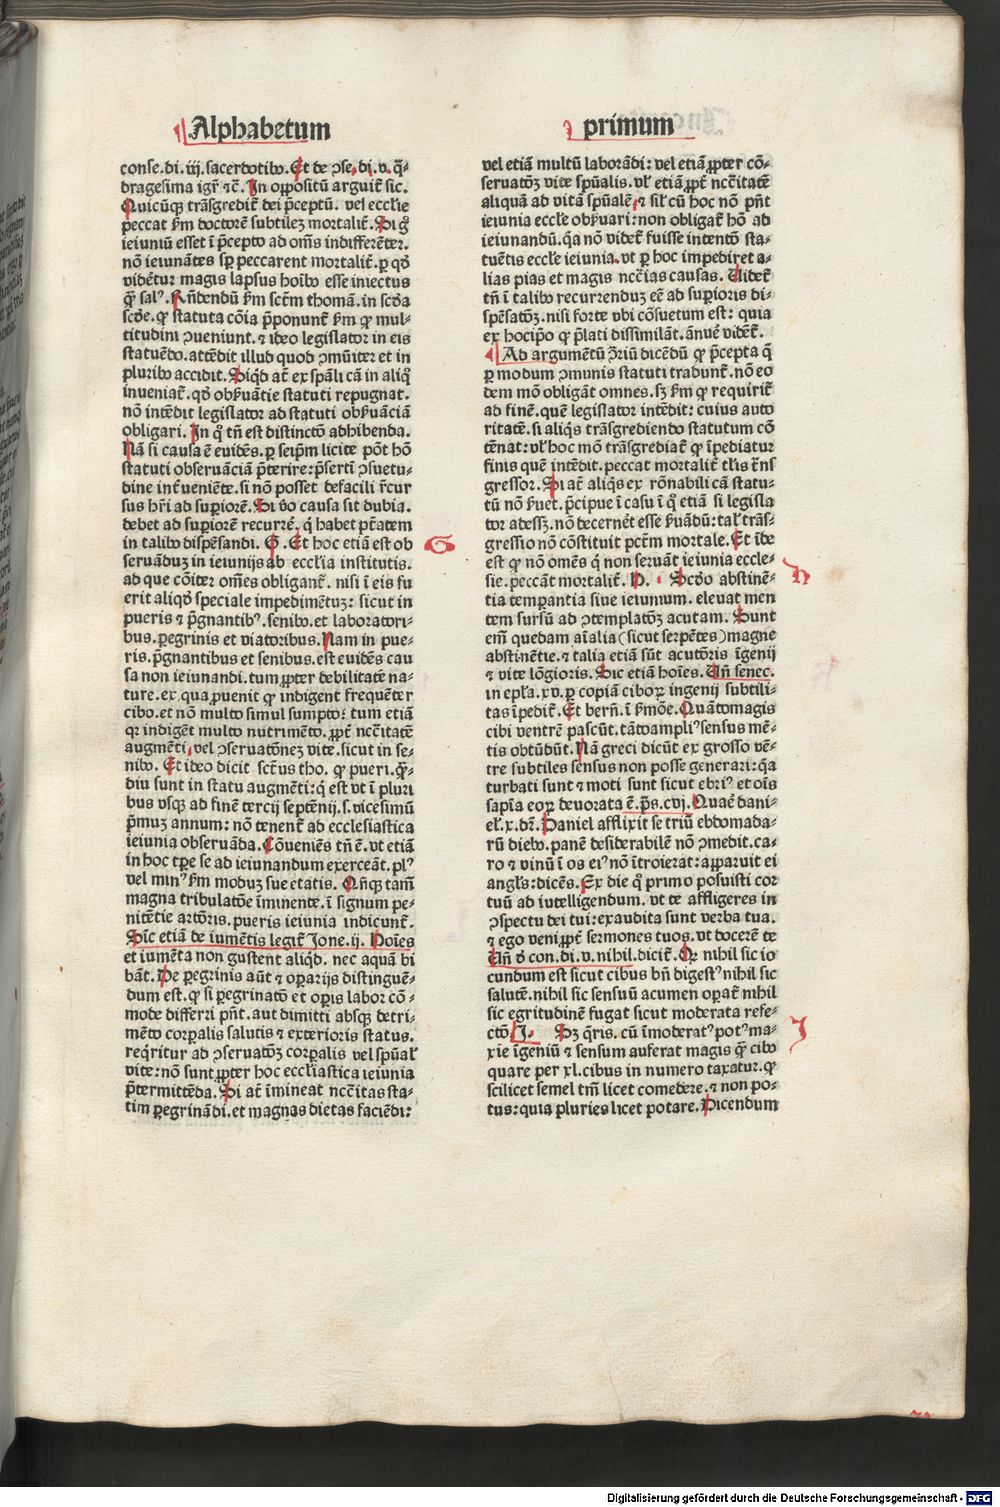 Alphabetum
primum
conse.di.iij.sacerdotibꝰ. Et de ↄse.di.v.q̄-
dragesima igr̃ ⁊c̃. In oppositũ arguit̃ sic.
Quicũqꝫ trãsgredit̃ dei p̃ceptũ. vel eccl̃ie
peccat ẜm doctorẽ subtilez mortalit̃. Si gͦ
ieiuniũ esset ĩ p̃cepto ad om̃s indifferẽter.
nõ ieiunãtes sp̱ peccarent mortalit̃. ꝑ qďͦ
videntur magis lapsus hoĩbꝰ esse iniectus
q̃ꝫ salꝰ. Rñdendũ ẜm sct̃m thomã. in scďa
scďe. ꝙ statuta cõia p̃ponunt̃ ẜm ꝙ mul-
titudini ↄueniunt. ⁊ ideo legislator in eis
statuẽdo. attẽdit illud quod ↄmũiter et in
pluribꝰ accidit. Siqͥd at̃ ex sp̃ali cã in aliqͦ
inueniat̃. qďͦ obẜuãtie statuti repugnat.
nõ intẽdit legislator ad statuti obẜuãciã
obligari. In qͦ tñ est distinctõ adhibenda.
Nã si causa ẽ euidẽs. ꝑ seip̃m licite põt hõ
statuti obseruãciã p̃terire: p̃serti᷑ ↄsuetu-
dine int̃ueniẽte. si nõ posset defacili r̃cur
sus hr̃i ad superiorẽ. Si ṽo causa sit dubia.
debet ad superiorẽ recurrẽ. qͥ habet ptãtem
in talibꝰ dispẽsandi. G. Et hoc etiã est ob
seruãduz in ieiunijs ab eccl̃ia institutis.
ad que cõiter om̃es obligant̃. nisi ĩ eis fu
erit aliqďͦ speciale impedimẽtuꝫ: sicut in
pueris ⁊ p̃gnantibꝰ. senibꝰ. et laboratori-
bus. ꝑegrinis et viatoribus. Nam in pue-
ris. p̃gnantibus et senibus. est euidẽs cau
sa non ieiunandi. tum ꝓpter debilitatẽ na-
ture. ex qua ꝓuenit ꝙ indigent frequẽter
cibo. et nõ multo simul sumpto: tum etiã
qꝛ indigẽt multo nutrimẽto. ꝓpt̃ ncc̃itatẽ
augmẽti. vel ↄseruatõnez vite. sicut in se-
nibꝰ. Et ideo dicit sct̃us tho. ꝙ pueri. q̃ꝫ-
diu sunt in statu augmẽti: qͥ est vt ĩ pluri
bus vsqꝫ ad finẽ tercij septẽnij. s. vicesimũ
p̃muz annum: nõ tenent̃ ad ecclesiastica
ieiunia obseruãda. Cõueniẽs tñ ẽ. vt etiã
in hoc tꝑe se ad ieiunandum exerceãt. plꝰ
vel minꝰ ẜm moduz sue etatis. Qñqꝫ tam̃
magna tribulatõe ĩminente. ĩ signum pe-
nitẽtie artõris. pueris ieiunia indicunt̃.
Sic etiã de iumẽtis legit̃ Jone.ij. Hoĩes
et iumẽta non gustent aliqͥd. nec aquã bi
bãt. De ꝑegrinis aũt ⁊ oꝑarijs distinguẽ-
dum est. ꝙ si ꝑegrinatõ et oꝑis labor cõ-
mode differri pñt. aut dimitti absqꝫ detri-
mẽto corꝑalis salutis ⁊ exterioris status.
reqͥritur ad ↄseruatõꝫ corꝑalis vel spũal̃
vite: nõ sunt ꝓpter hoc eccl̃iastica ieiunia
p̃termittẽda. Si at̃ ĩmineat ncc̃itas sta-
tim ꝑegrinãdi. et magnas dietas faciẽdi:
vel etiã multũ laborãdi: vel etiã ꝓpter cõ-
seruatõꝫ vite spũalis. vl̃ etiã ꝓpt̃ ncc̃itatẽ
aliquã ad vitã spũalẽ. ⁊ sil̃ cũ hoc nõ pñt
ieiunia eccl̃e obẜuari: non obligat̃ hõ ad
ieiunandũ. qͥa nõ videt̃ fuisse intentõ sta-
tuẽtis eccl̃e ieiunia. vt ꝑ hoc impediret a-
lias pias et magis ncc̃ias causas. Videt̃
tñ ĩ talibꝰ recurrenduz eẽ ad suꝑioris di-
spẽsatõꝫ. nisi forte vbi cõsuetum est: quia
ex hocip̃o ꝙ p̃lati dissimilãt. ãnuẽ vidẽt̃.
Ad argumẽtũ ↄ̃riũ dicẽdũ ꝙ p̃cepta q̃
ꝑ modum ↄmunis statuti tradunt̃. nõ eo
dem mõ obligãt omnes. sꝫ ẜm ꝙ requirit̃
ad finẽ. quẽ legislator intẽdit: cuius auto
ritatẽ. si aliqͥs trãsgrediendo statutum cõ
tẽnat: vl̃ hoc mõ trãsgrediat̃ ꝙ ĩpediatur
finis quẽ intẽdit. peccat mortalit̃ tl̃is t̃ns
gressor. Si at̃ aliqͥs ex rõnabili cã statu-
tũ nõ ẜuet. p̃cipue ĩ casu ĩ qͦ etiã si legisla
tor adessꝫ. nõ decernet esse ẜuãdũ: tal̃ trãs-
gressio nõ cõstituit pct̃m mortale. Et ĩde
est ꝙ nõ omẽs qͥ non seruãt ieiunia eccle-
sie. peccãt mortalit̃. H. Scďo abstinẽ-
tia temperantia siue ieiunium. eleuat men
tem sursũ ad ↄtemplatõꝫ acutam. Sunt
em̃ quedam aĩalia (sicut serpẽtes) magne
abstinẽtie. ⁊ talia etiã sũt acutõris ĩgenij
⁊ vite lõgioris. Sic etiã hoĩes. Vñ senec.
in epl̃a.xv. ꝑ copiã ciboꝝ ingenij subtili-
tas ĩpedit̃. Et berñ. ĩ ẜmõe. Quãtomagis
cibi ventrẽ pascũt. tãtoampliꝰ sensus mẽ-
tis obtũdũt. Nã greci dicũt ex grosso vẽ-
tre subtiles sensus non posse generari: qͥa
turbati sunt ⁊ moti sunt sicut ebriꝰ et oĩs
sap̃ia eoꝝ deuorata ẽ. p̃s.cvj. Quaẽ dani-
el̃.x.dr̃. Daniel afflixit se triũ ebdomada-
rũ diebꝰ. panẽ desiderabilẽ nõ ↄmedit. ca-
ro ⁊ vinũ ĩ os eiꝰ nõ ĩtroierat: apparuit ei
angl̃s: dicẽs. Ex die qͦ primo posuisti cor
tuũ ad iutelligendum. vt te affligeres in
ↄspectu dei tui: exaudita sunt verba tua.
⁊ ego veni ꝓpt̃ sermones tuos. vt docerẽ te
Vñ ď con.di.v.nihil. dicit̃. Qꝛ nihil sic io
cundum est sicut cibus bñ digestꝰ nihil sic
salutẽ. nihil sic sensuũ acumen oꝑat̃ nihil
sic egritudinẽ fugat sicut moderata refe-
ctõ. J. Sꝫ q̃ris. cũ ĩmoderatꝰ potꝰ ma-
xĩe ĩgeniũ ⁊ sensum auferat magis q̃ꝫ cibꝰ
quare per xl. cibus in numero taxatur. ꝙ
scilicet semel tm̃ licet comedere. ⁊ non po-
tus: quia pluries licet potare. Dicendum
G
H
J
Digitalisierung gefördert durch die Deutsche Forschungsgemeinschaft - DFG